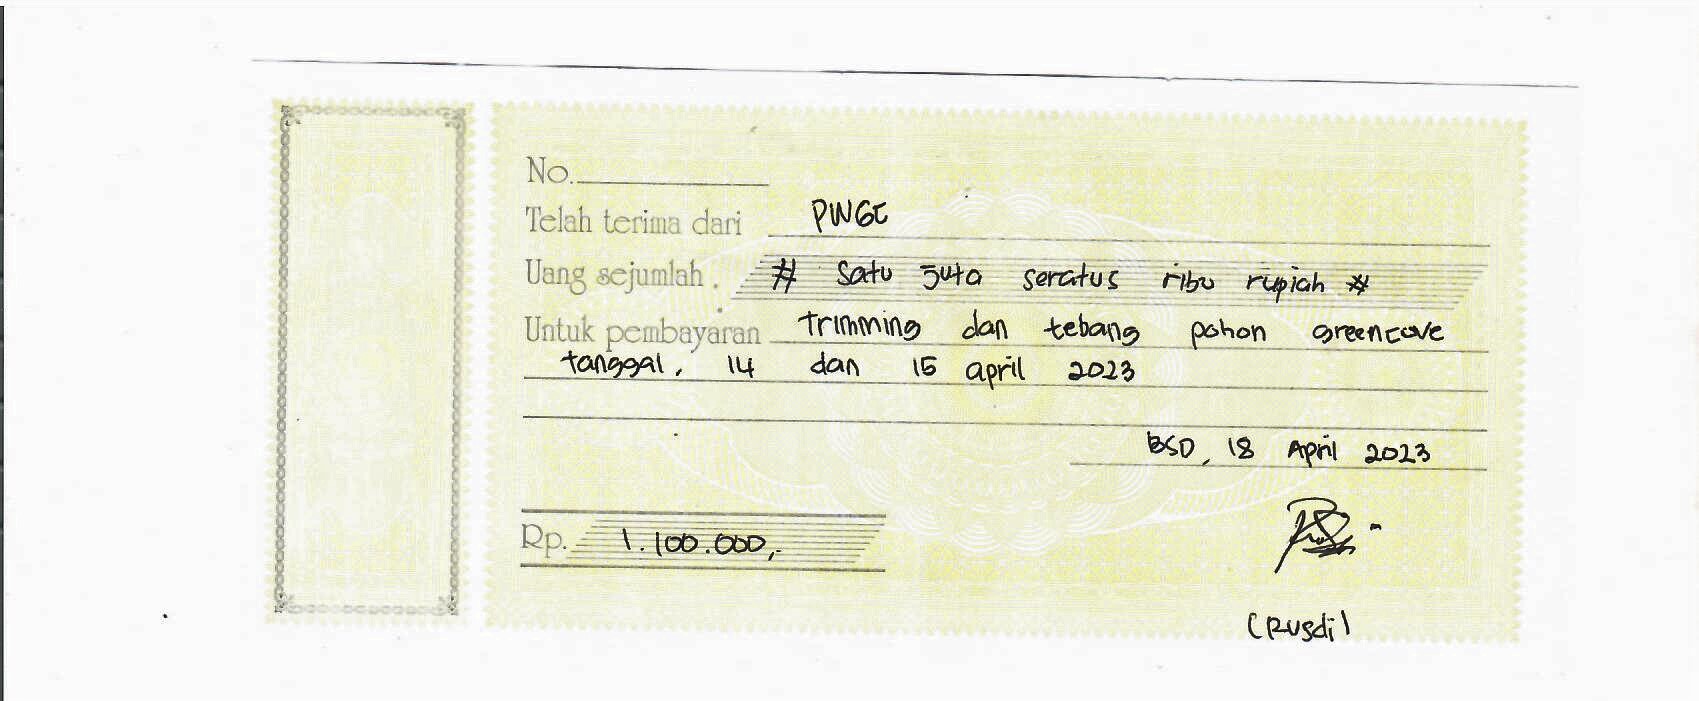 No.
Telah terima dari PWGC
Uang sejumlah : # Satu Juta seratus ribu rupiah #
Untuk pembayaran Trimming dan tebang pohon greencove
tanggal, 14 dan 15 april 2023
BSD, 18 April 2023
Rp. 1.100.000,-
(Rusdi)